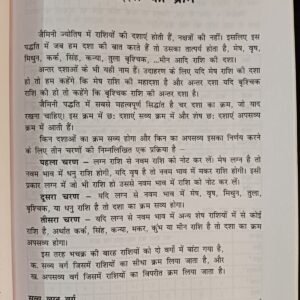 जैमिनी ज्योतिष में राशियों की दशाएं होती हैं, नक्षत्रों की नहीं। इसलिए इस
पद्धति में जब हम दशा की बात करते हैं तो उसका तात्पर्य होता है, मेष, वृष,
मिथुन, कर्क, सिंह, कन्या, तुला वृश्चिक,...मीन आदि राशि की दशा।
अन्तर दशाओं के भी यही नाम हैं। उदाहरण के लिए यदि मेष राशि की दशा
हो तो हम कहेंगे कि मेष राशि की महादशा है और अन्तर दशा यदि वृश्चिक
राशि की हो तो कहेंगे कि वृश्चिक राशि की अन्तर दशा है।
जैमिनी पद्धति में सबसे महत्वपूर्ण सिद्धांत है चर दशा का क्रम, जो याद
रखना चाहिए। इस क्रम में छः दशाएं सव्य क्रम में और शेष छः दशाएं अपसव्य
क्रम में आती हैं।
चर दशाओं का क्रम सव्य होगा और किन का अपसव्य इसका निर्णय करने
के लिए तीन चरणों की निम्नलिखित एक प्रक्रिया है –
पहला चरण – लग्न राशि से नवम राशि को नोट कर लें। मेष लग्न है तो
नवम भाव में धनु राशि होगी, यदि वृष है तो नवम भाव में मकर राशि होगी। इसी
प्रकार लग्न में जो भी राशि हो उससे नवम भाव की राशि को नोट कर लें।
दूसरा चरण – यदि लग्न से नवम भाव में मेष, वृष, मिथुन, तुला,
वृश्चिक, या धनु राशि है तो दशा का क्रम सव्य होगा।
तीसरा चरण – यदि लग्न से नवम भाव में अन्य शेष राशियों में से कोई
राशि है, अर्थात कर्क, सिंह, कन्या, मकर, कुंभ या मीन राशि है तो दशा का क्रम
अपसव्य होगा।
इस तरह भचक्र की बारह राशियों को दो वर्गों में बांटा गया है,
क. सव्य वर्ग जिसमें राशियों का सीधा क्रम लिया जाता है, और
ख. अपसव्य वर्ग जिसमें राशियों का विपरीत क्रम लिया जाता है।